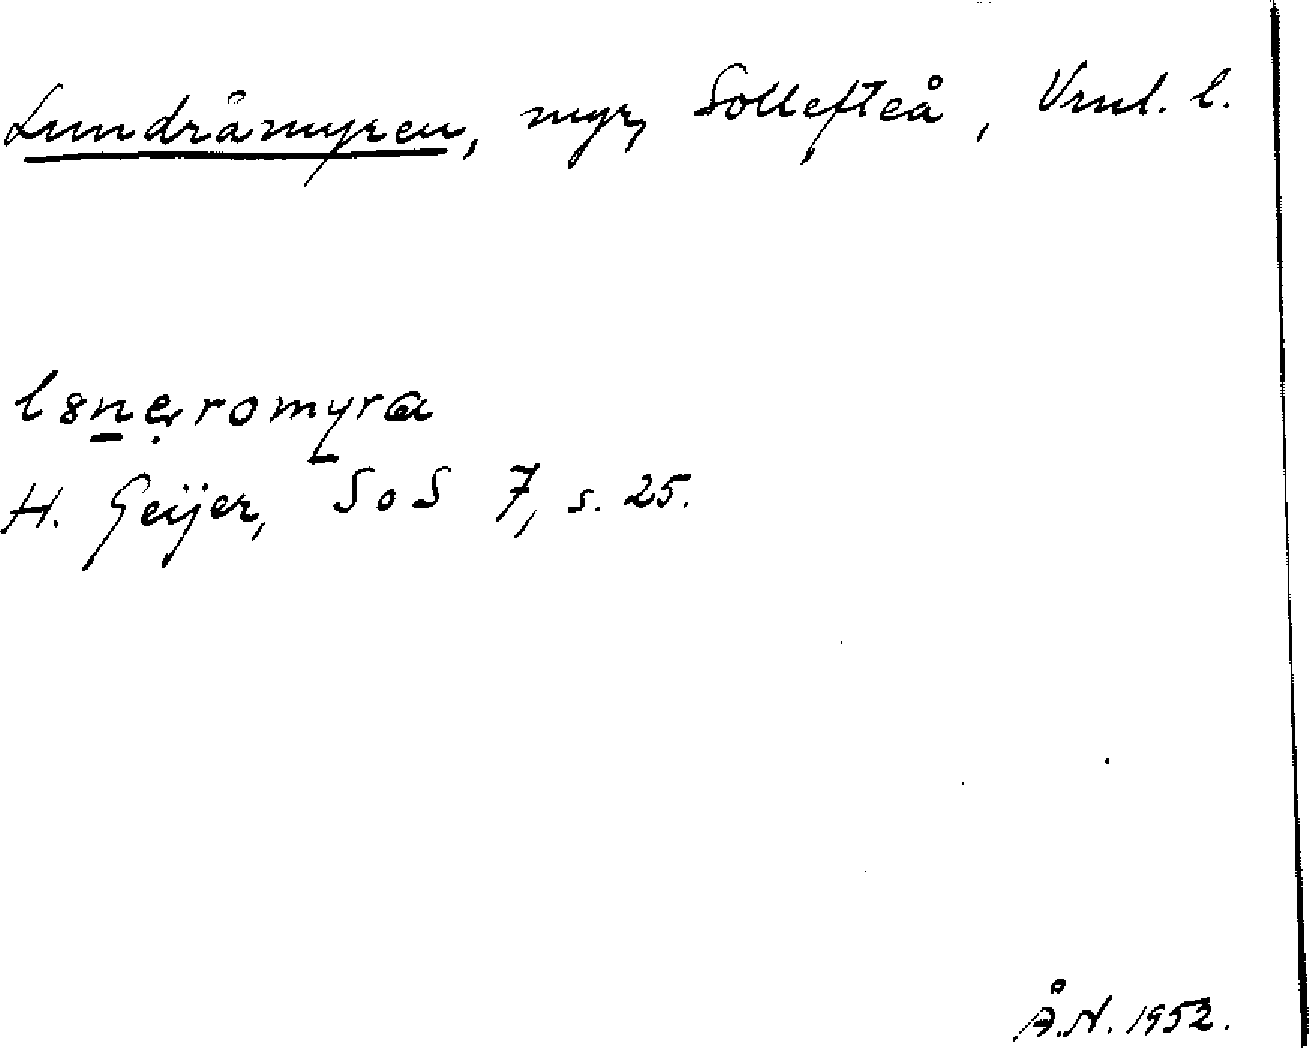 Lundråmyren, myr, Sollefteå, Vrnl. l.
l8nəromyra
H. Geijer, SoS 7, s. 25.
Å.N. 1952.